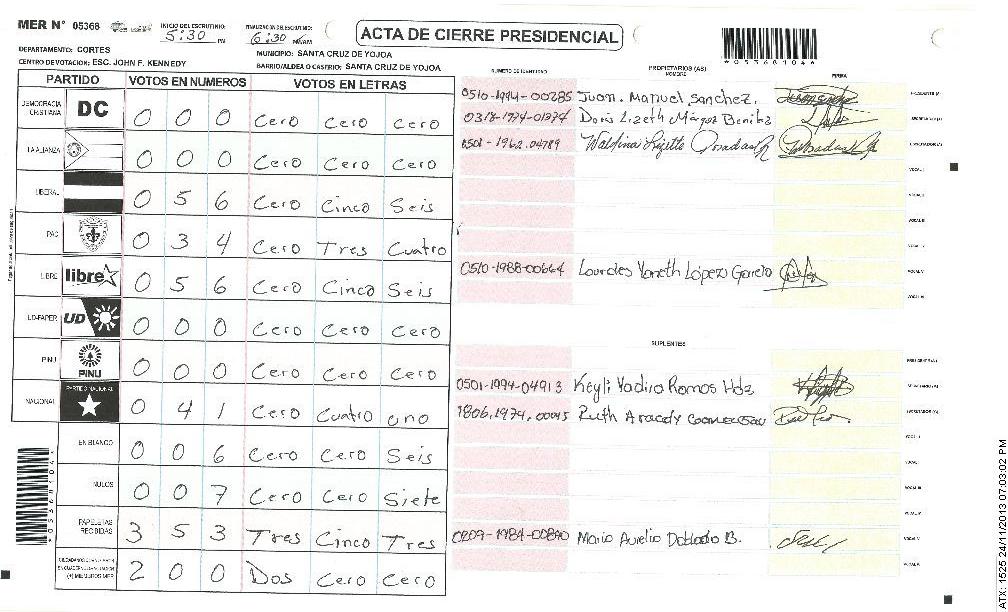 MER N° 05368
INICIO DEL ESCRUTINIO: 5:30 PM
FINALIZACION DEL ESCRUTINIO: 6:30 PM/AM
ACTA DE CIERRE PRESIDENCIAL
DEPARTAMENTO: CORTES
MUNICIPIO: SANTA CRUZ DE YOJOA
CENTRO DE VOTACION: ESC. JOHN F. KENNEDY
BARRIO/ALDEA O CASTRIO: SANTA CRUZ DE YOJOA
*05368104*
PARTIDO VOTOS EN NUMEROS VOTOS EN LETRAS
DEMOCRACIA CRISTIANA DC 0 0 0 Cero Cero Cero
LA ALIANZA 0 0 0 Cero Cero Cero
LIBERAL 0 5 6 Cero Cinco Seis
PAC 0 3 4 Cero Tres Cuatro
LIBRE libre 0 5 6 Cero Cinco Seis
UD-FAPER UD 0 0 0 Cero Cero Cero
PINU PINU 0 0 0 Cero Cero Cero
NACIONAL PARTIDO NACIONAL 0 4 1 Cero Cuatro uno
EN BLANCO 0 0 6 Cero Cero Seis
NULOS 0 0 7 Cero Cero Siete
PAPELETAS RECIBIDAS 3 5 3 Tres Cinco Tres
(+) MIEMBROS MER 2 0 0 Dos Cero Cero
*05368104*
NUMERO DE IDENTIDAD PROPIETARIOS (AS) NOMBRE FIRMA
0510-1994-00285 Juan. Manuel Sanchez. PRESIDENTE (A)
0318-1974-01274 Doris Lizeth Márquez Benitez SECRETARIO (A)
0501-1962.04789 Waldina Lizette ESCRUTADOR (A)
VOCAL I
VOCAL II
VOCAL III
VOCAL IV
0510-1988-00664 Lourdes Yaneth López Garcia VOCAL V
VOCAL VI
SUPLENTES
PRESIDENTE (A)
0501-1994-04913 Keyli Yadira Ramos Hdz SECRETARIO (A)
1806,1974,00015 Ruth Aracely ESCRUTADOR (A)
VOCAL I
VOCAL II
VOCAL III
VOCAL IV
0209-1984-00890 Mario Aurelio Doblado B. VOCAL V
VOCAL VI
ATX: 1525 24/11/2013 07:03:02 PM